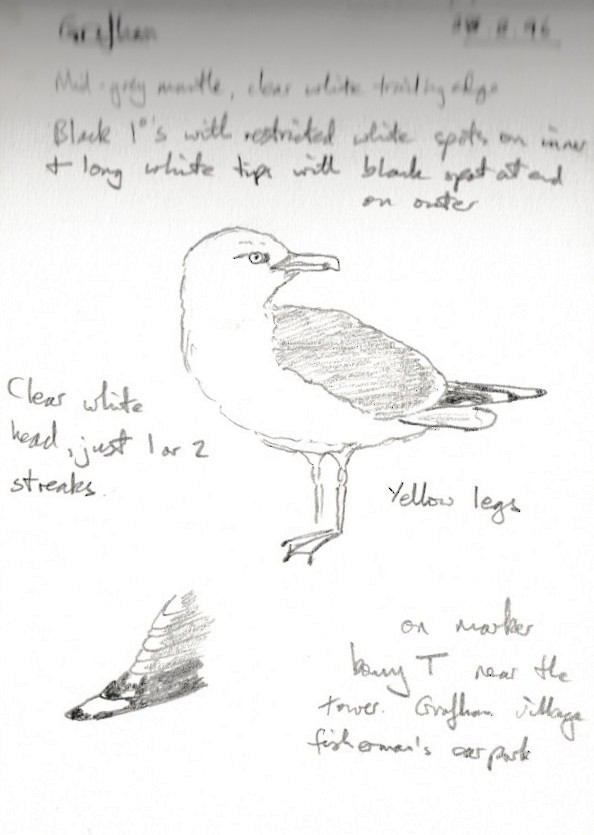 Grafham
.96
Mid-grey mantle, clear white trailing edge
Black 1°'s with restricted white spots on inner
+ long white tips with black spot at end
on outer
Clear white
head, just 1 or 2
streaks.
Yellow legs
on marker
T near the
tower. Grafham village
fisherman's car park